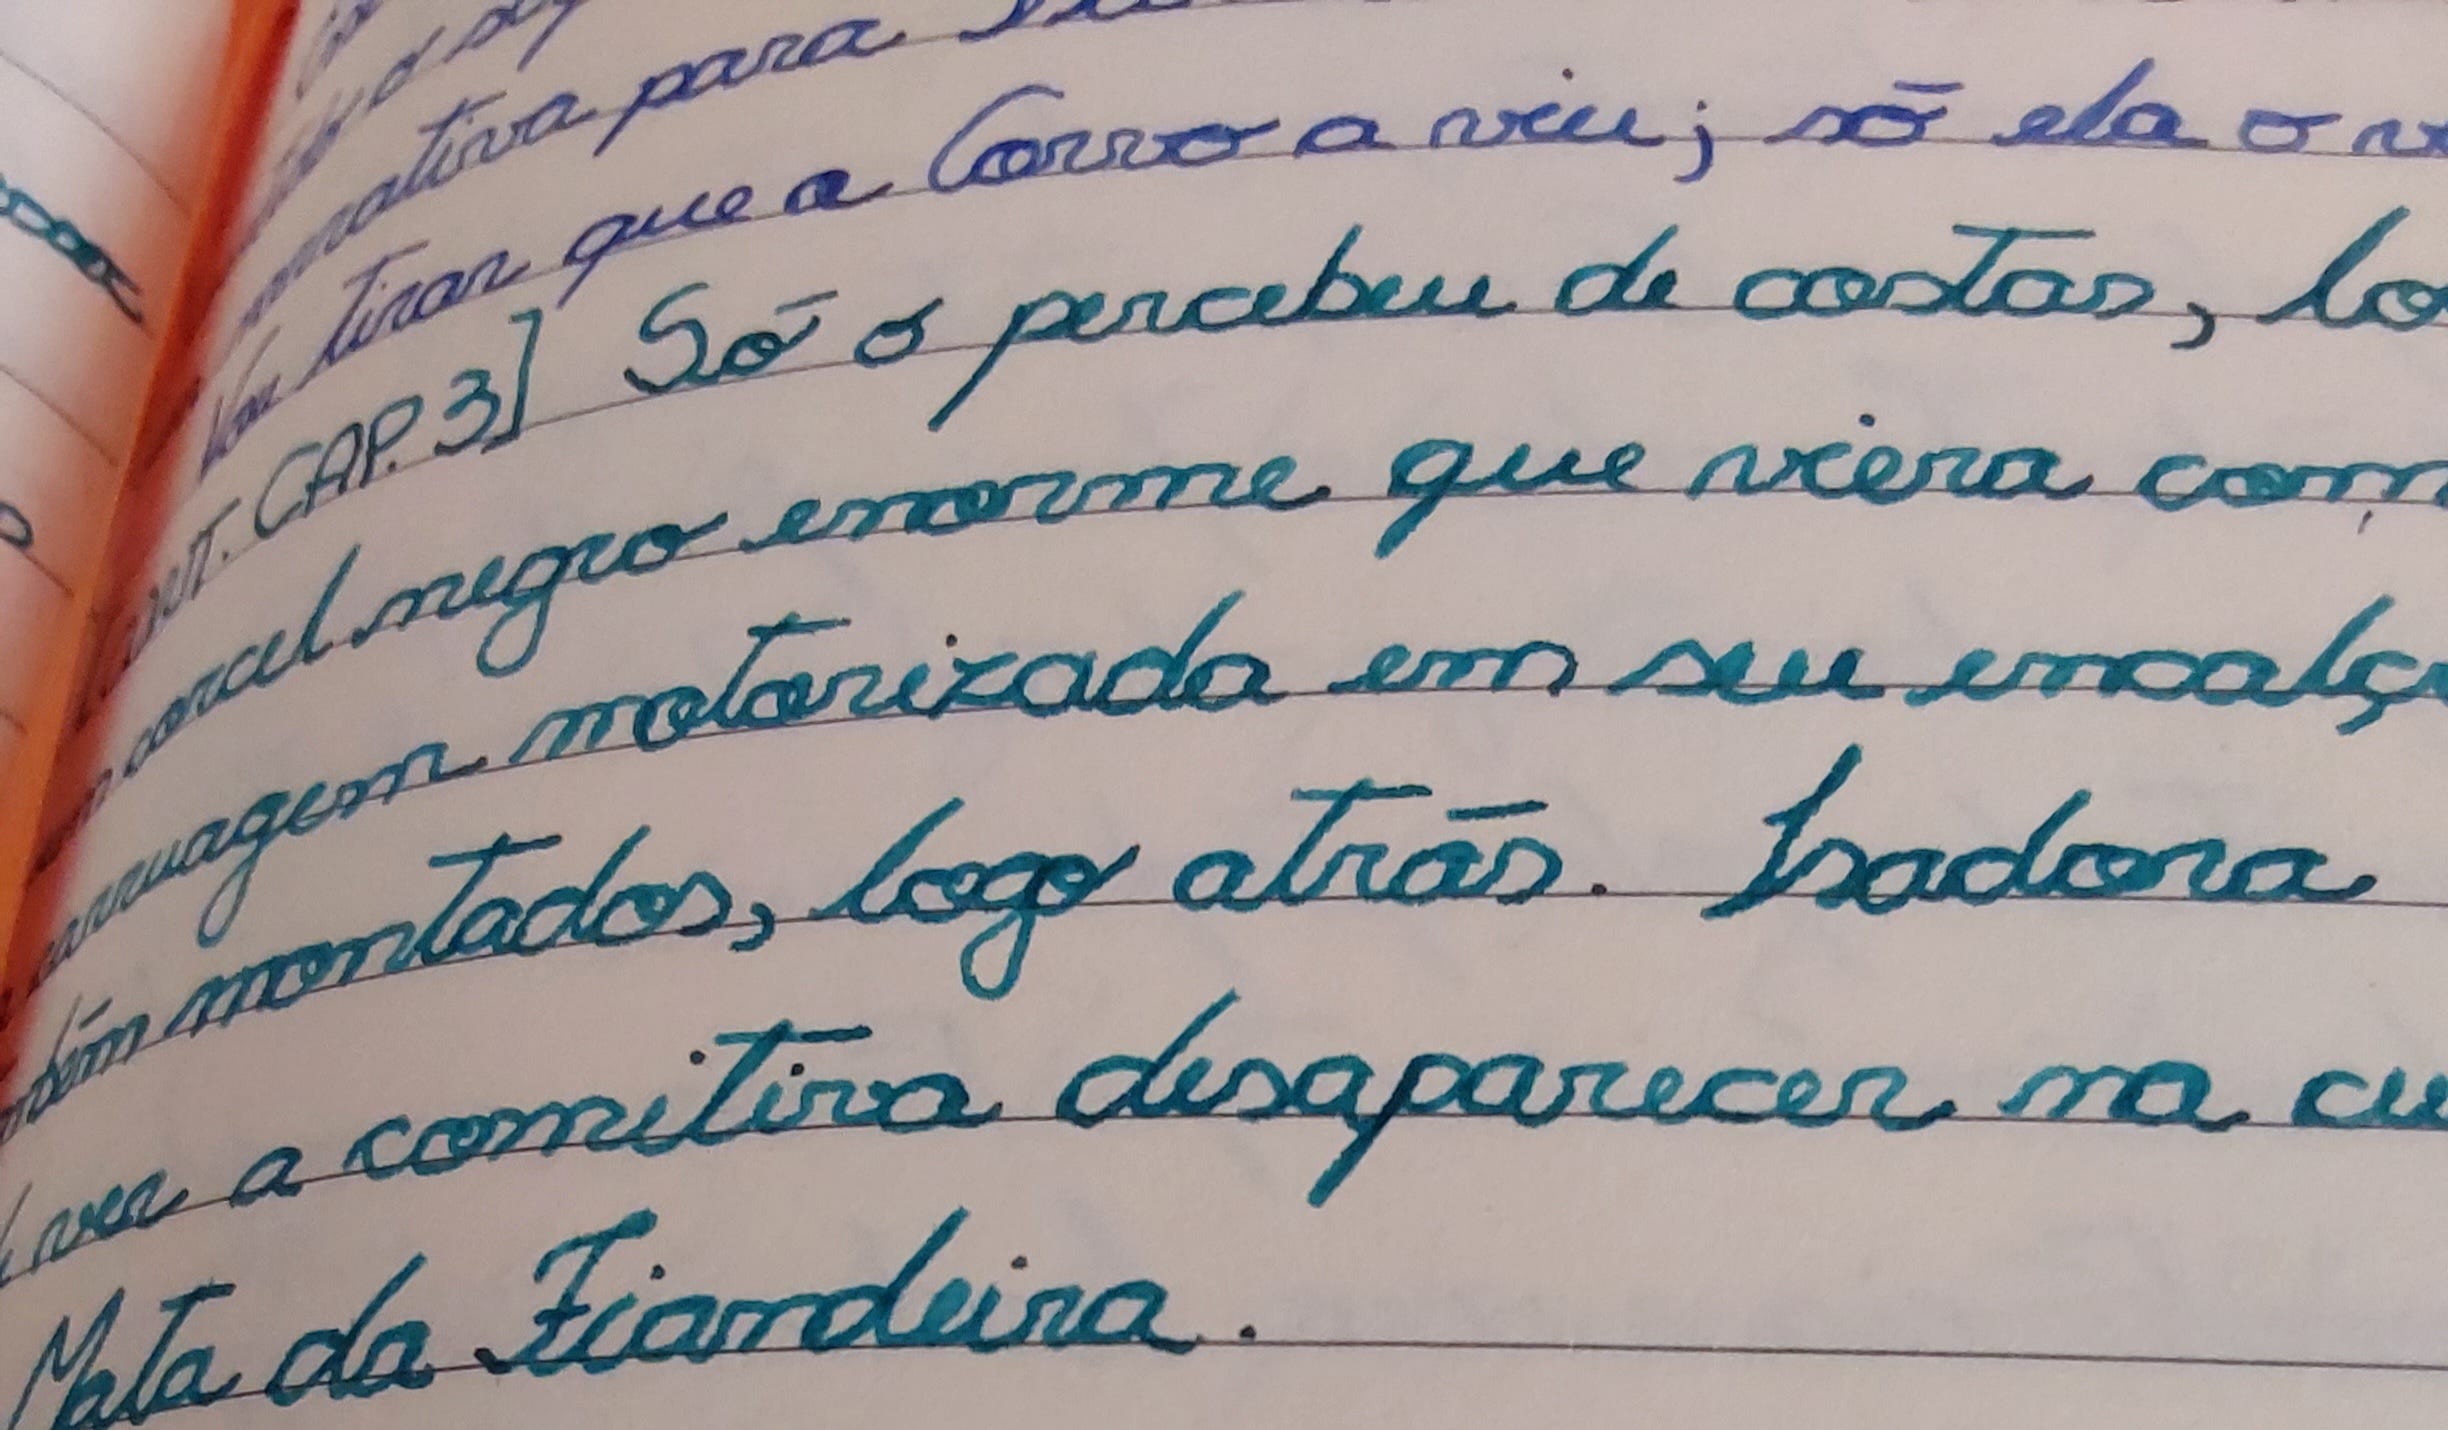 para
tirar que a Corvo a viu; só ela o
CAP. 3] Só o percebeu de costas,
corcel negro enorme que viera com
carruagem motorizada em seu encalç
montados, logo atrás. Isadora
ver a comitiva desaparecer na cu
Mata da Fiandeira.